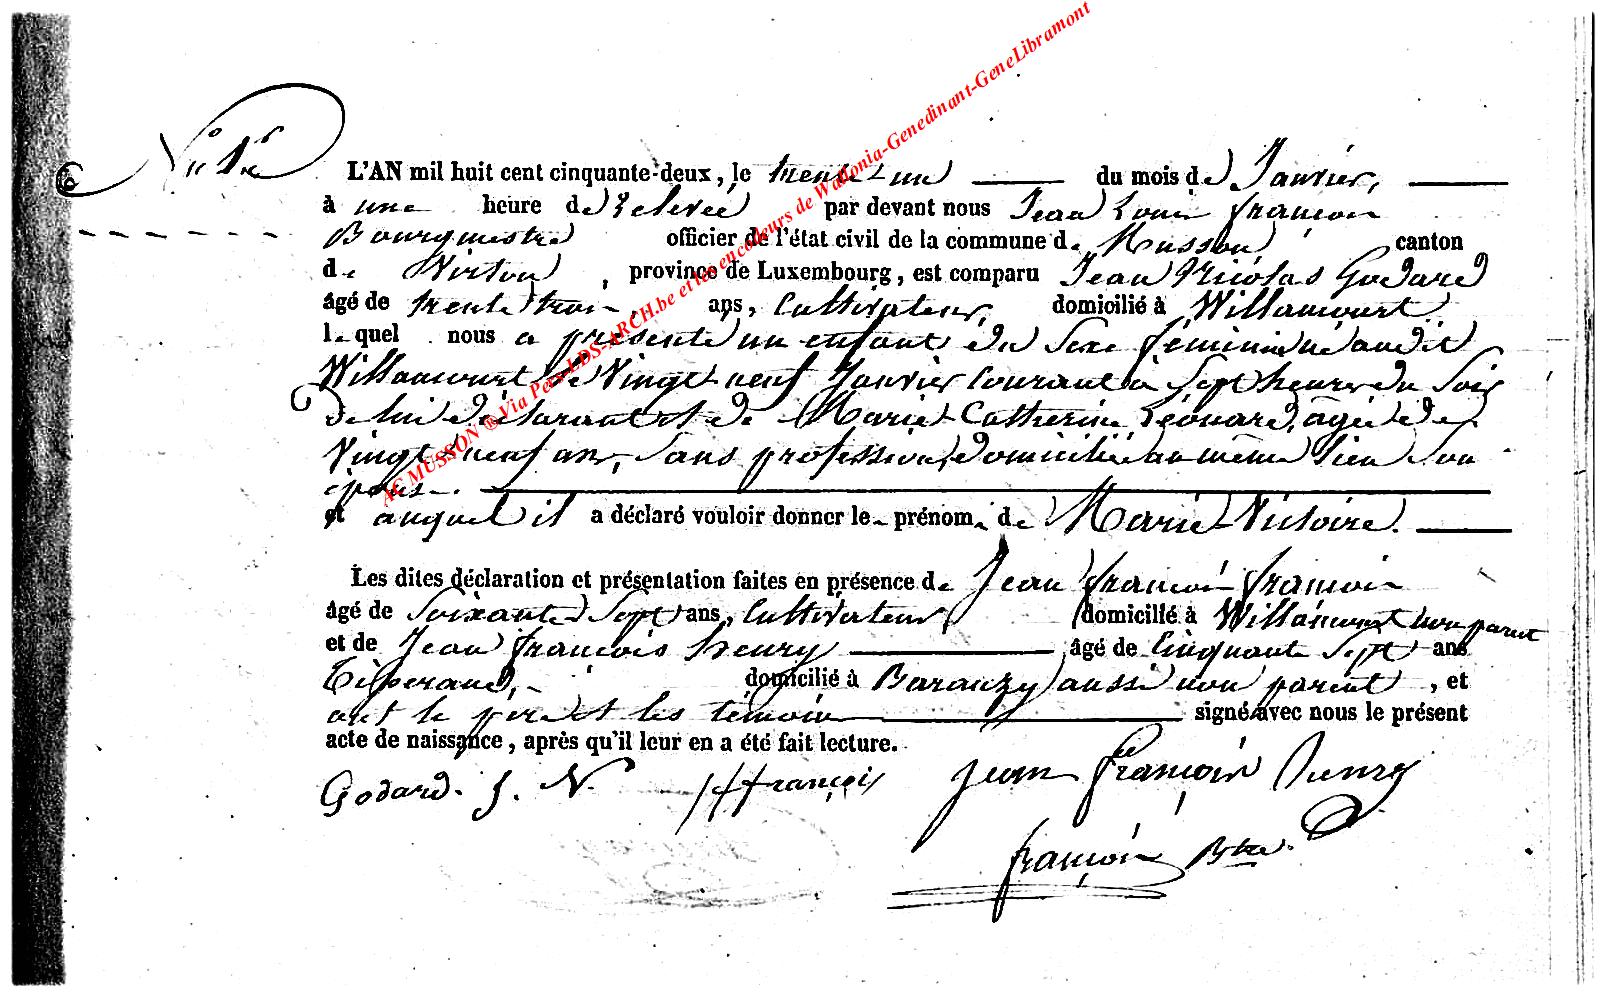 AC MUSSON ® Via Pers LDS-ARCH.be et les encodeurs de Wallonia-Genedinant-GeneLibramont
L'AN mil huit cent cinquante-deux, le trente-un du mois de Janvier,
à une heure de Relevée par devant nous Jean Louis françois
Bourgmestre officier de l'état civil de la commune de Musson canton
de Virton, province de Luxembourg, est comparu Jean Nicolas Godard
âgé de trente trois ans, Cultivateur, domicilié à Willancourt
lequel nous a présenté un enfant du Sexe féminin né audit
Willancourt le Vingt-neuf Janvier Courant à Sept heures du Soir
de lui déclarant et de Marie-Catherine Léonard, agée de
Vingt-neuf ans, Sans profession, domiciliée au même lieu Son
épouse.
et auquel il a déclaré vouloir donner le prénom de Marie-Victoire.
Les dites déclaration et présentation faites en présence de Jean françois françois
âgé de Soixante Sept ans, Cultivateur domicilié à Willancourt non parent
et de Jean françois henry âgé de Cinquante Sept ans
Tisserand, domicilié à Baranzy aussi non parent, et
ont le père et les témoins signé avec nous le présent
acte de naissance, après qu'il leur en a été fait lecture.
Godard. J. N. JFfrançois Jean françois henry
françois Btre.